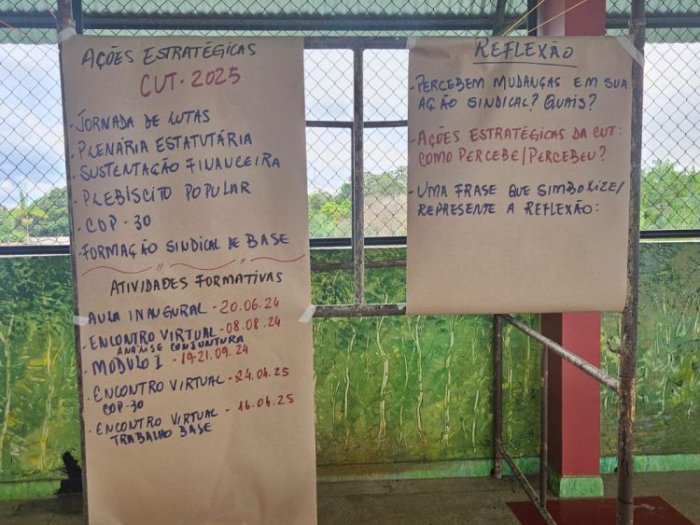 AÇÕES ESTRATÉGICAS
CUT - 2025
- JORNADA DE LUTAS
- PLENÁRIA ESTATUTÁRIA
- SUSTENTAÇÃO FINANCEIRA
- PLEBISCITO POPULAR
- COP - 30
- FORMAÇÃO SINDICAL DE BASE
ATIVIDADES FORMATIVAS
- AULA INAUGURAL - 20.06.24
- ENCONTRO VIRTUAL - 08.08.24
ANÁLISE CONJUNTURA
- MODULO I - 19-21.09.24
- ENCONTRO VIRTUAL - 24.04.25
COP-30
- ENCONTRO VIRTUAL - 16.04.25
TRABALHO BASE
REFLEXÃO
- PERCEBEM MUDANÇAS EM SUA
AÇÃO SINDICAL? QUAIS?
- AÇÕES ESTRATÉGICAS DA CUT:
COMO PERCEBE/PERCEBEU?
- UMA FRASE QUE SIMBOLIZE/
REPRESENTE A REFLEXÃO: